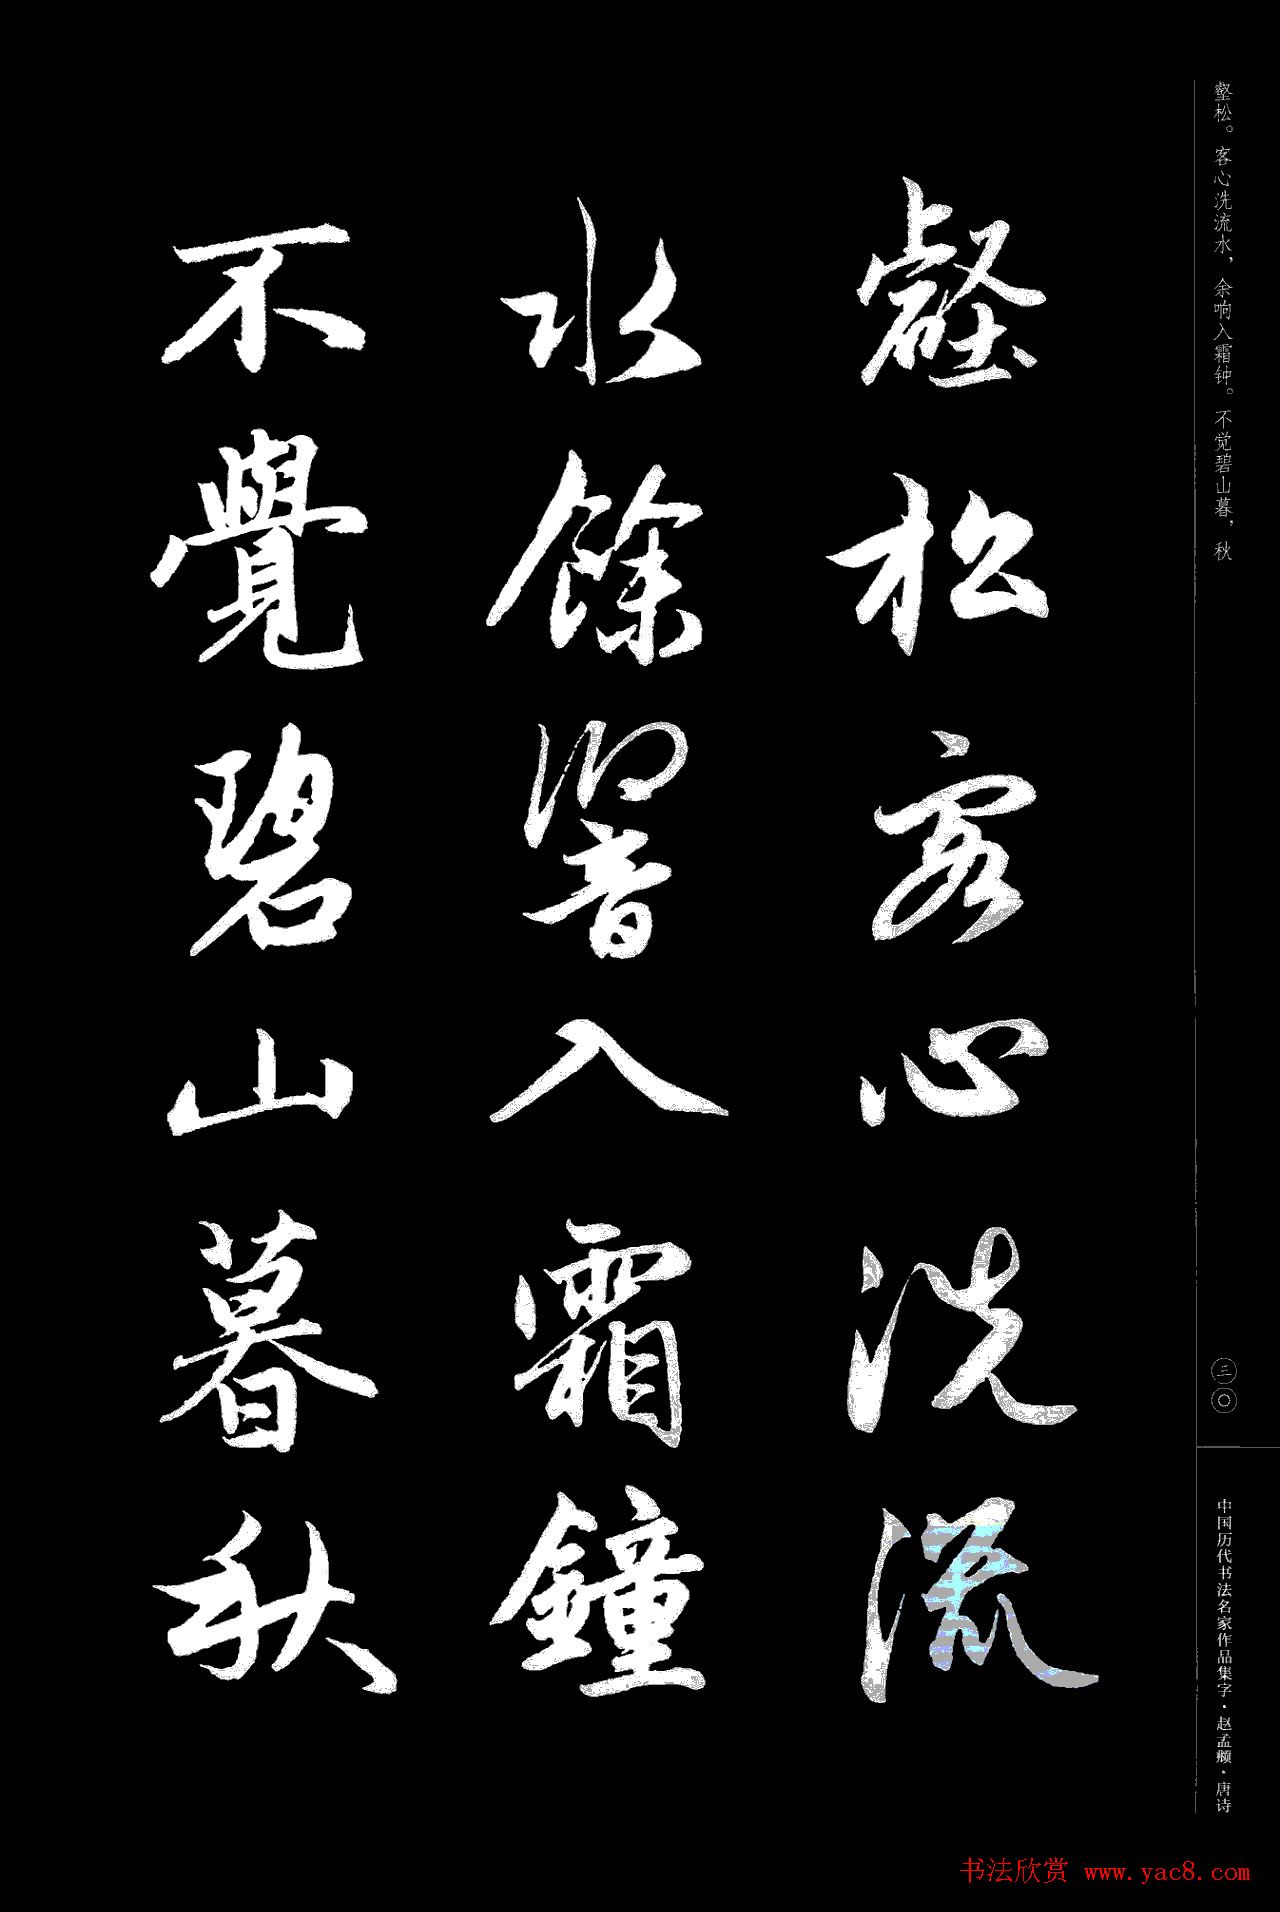 壑松。客心洗流水，余响入霜钟。不觉碧山暮，秋
三〇
中国历代书法名家作品集字·赵孟頫·唐诗
壑松客心洗流
水餘響入霜鐘
不覺碧山暮秋
书法欣赏 www.yac8.com